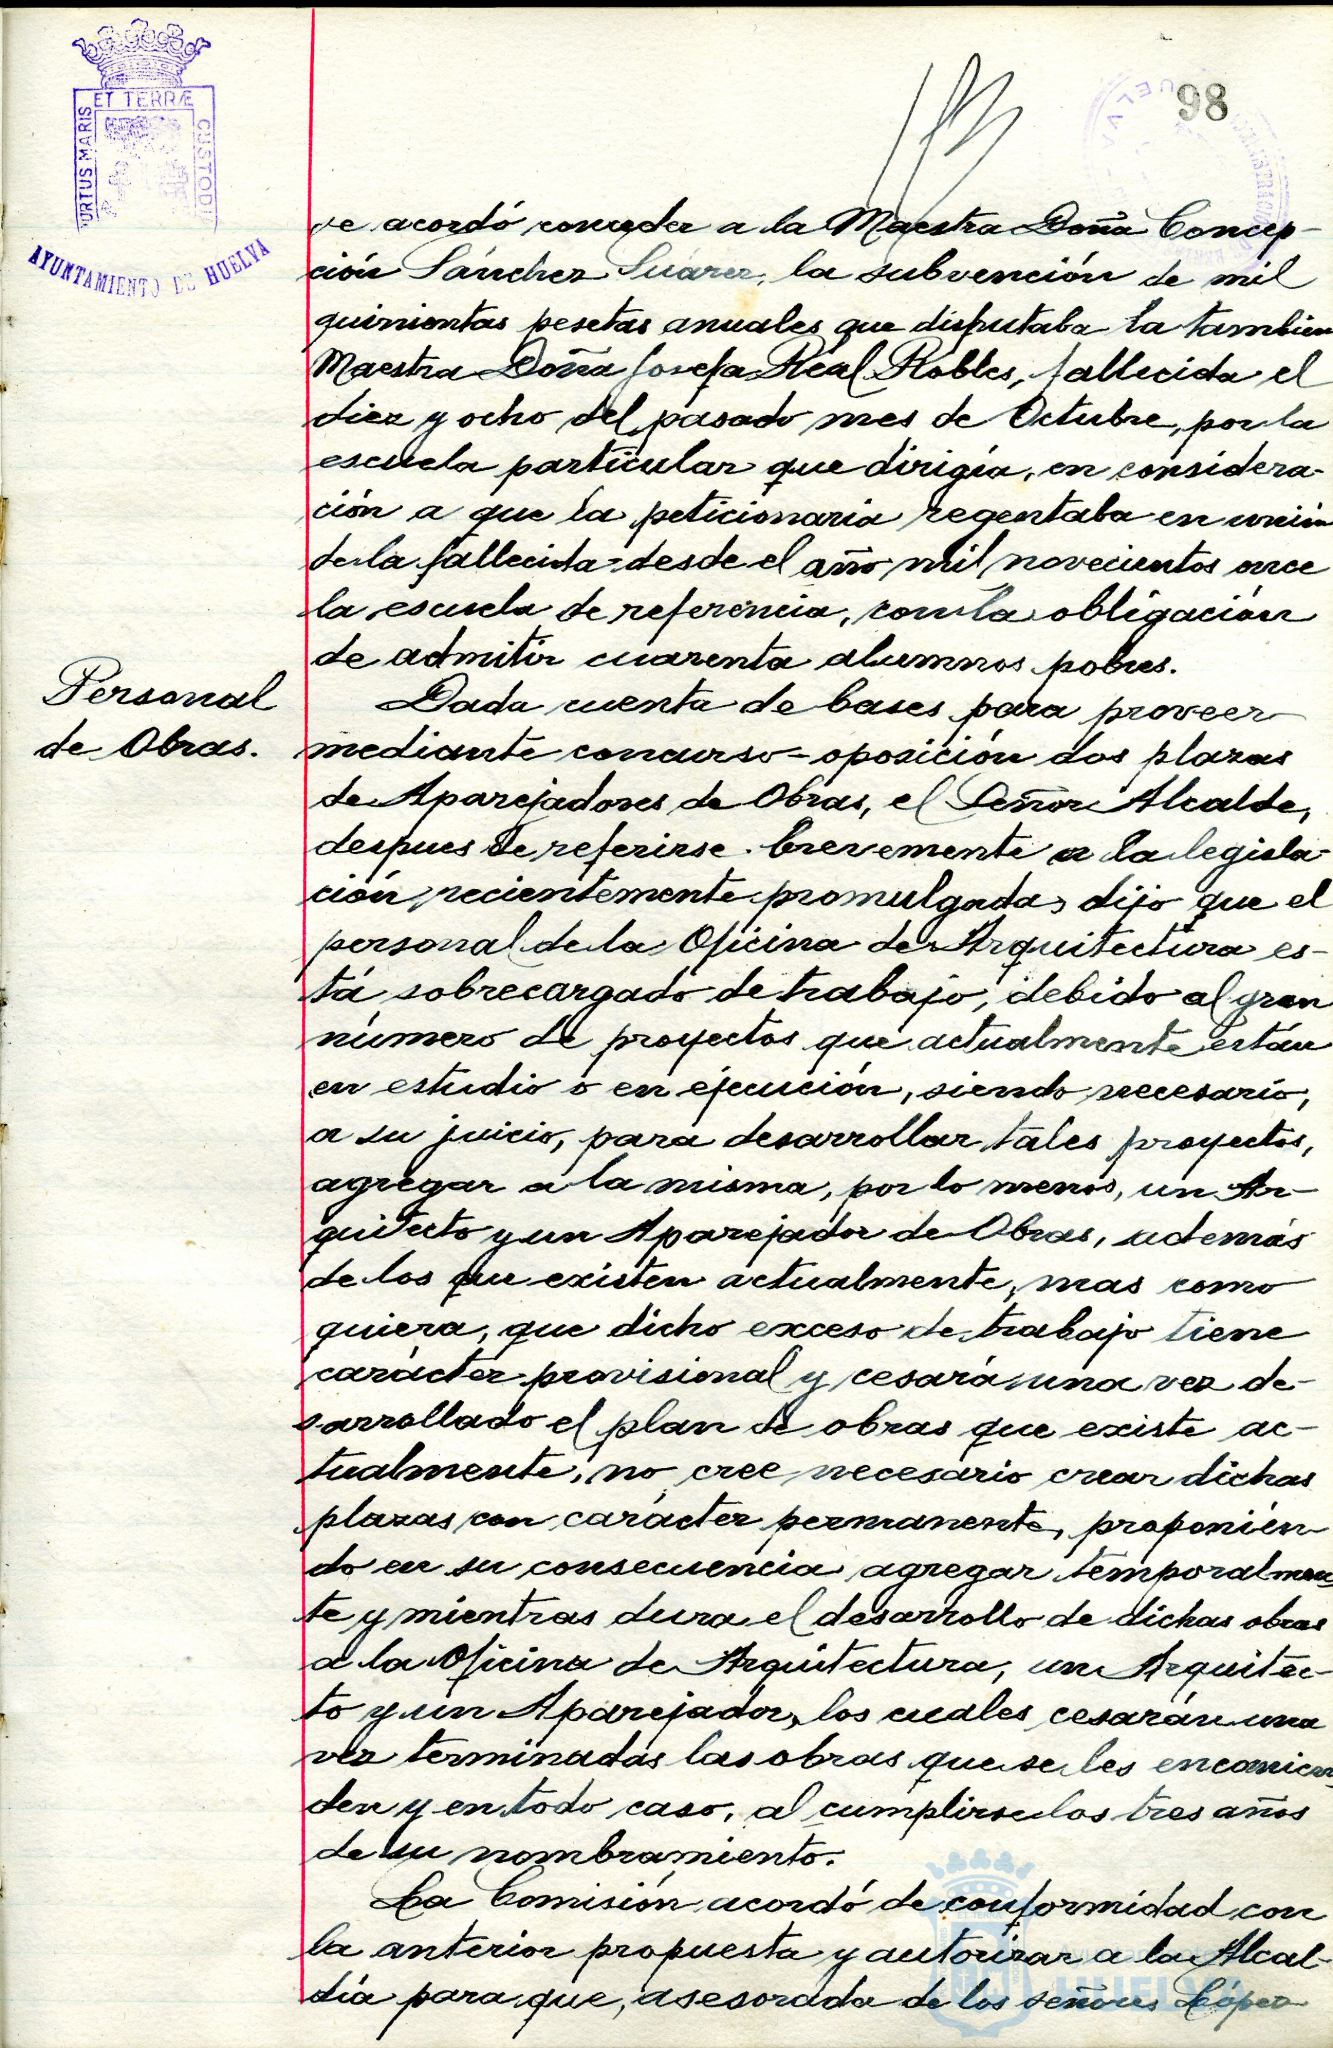 98
ET TERRÆ
URTUS MARIS
CUSTODI
AYUNTAMIENTO DE HUELVA
se acordó conceder a la Maestra Doña Concep-
ción Sánchez Suárez, la subvención de mil
quinientas pesetas anuales que disfrutaba la tambien
Maestra Doña Josefa Real Robles, fallecida el
diez y ocho del pasado mes de Octubre, por la
escuela particular que dirigía, en considera-
ción a que la peticionaria regentaba en unión
de la fallecida desde el año mil novecientos once
la escuela de referencia, con la obligación
de admitir cuarenta alumnos pobres.
Personal
de Obras.
Dada cuenta de bases para proveer
mediante concurso-oposición dos plazas
de Aparejadores de Obras, el Señor Alcalde,
despues de referirse brevemente a la legisla-
ción recientemente promulgada, dijo que el
personal de la Oficina de Arquitectura es-
tá sobrecargado de trabajo, debido al gran
número de proyectos que actualmente están
en estudio o en ejecución, siendo necesario,
a su juicio, para desarrollar tales proyectos,
agregar a la misma, por lo menos, un Ar-
quitecto y un Aparejador de Obras, además
de los que existen actualmente, mas como
quiera, que dicho exceso de trabajo tiene
carácter provisional y cesará una vez de-
sarrollado el plan de obras que existe ac-
tualmente, no cree necesario crear dichas
plazas con carácter permanente, proponién-
do en su consecuencia agregar temporalmen-
te y mientras dura el desarrollo de dichas obras
a la Oficina de Arquitectura, un Arquitec-
to y un Aparejador, los cuales cesarán una
vez terminadas las obras que se les encomien-
den y en todo caso, al cumplirse los tres años
de su nombramiento.
La Comisión acordó de conformidad con
la anterior propuesta y autorizar a la Alcal-
día para que, asesorada de los señores López
HUELVA